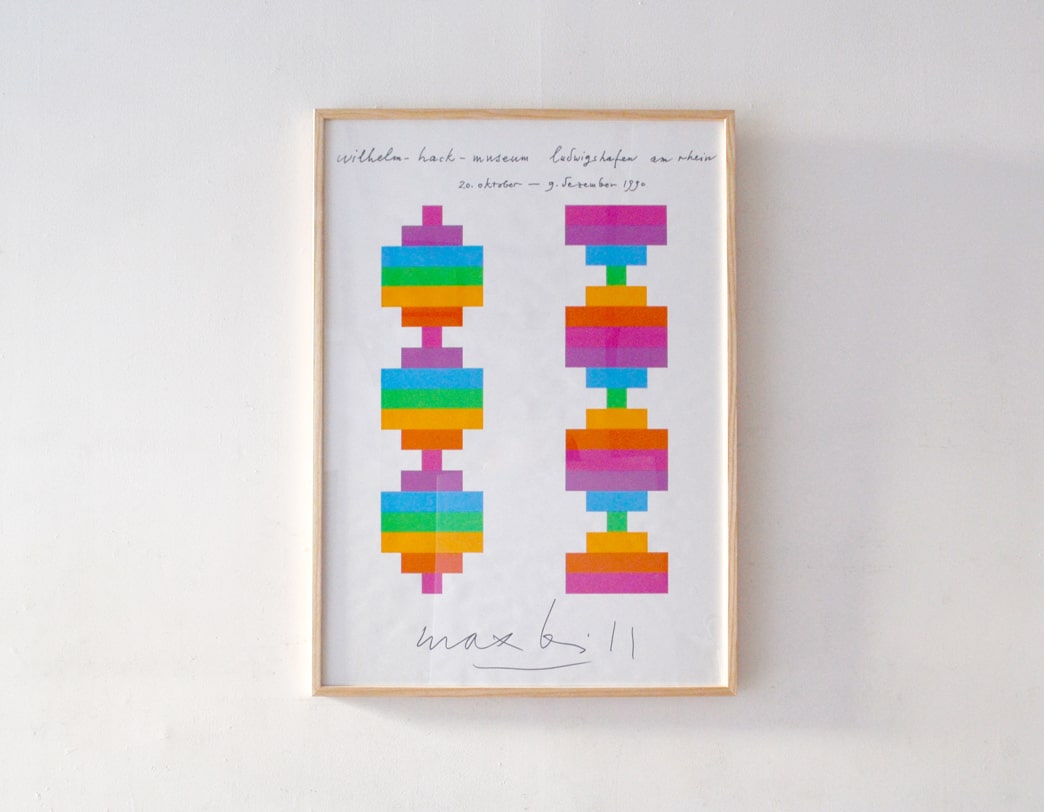 wilhelm-hack-museum ludwigshafen am rhein
20. oktober — 9. dezember 1990
max bill